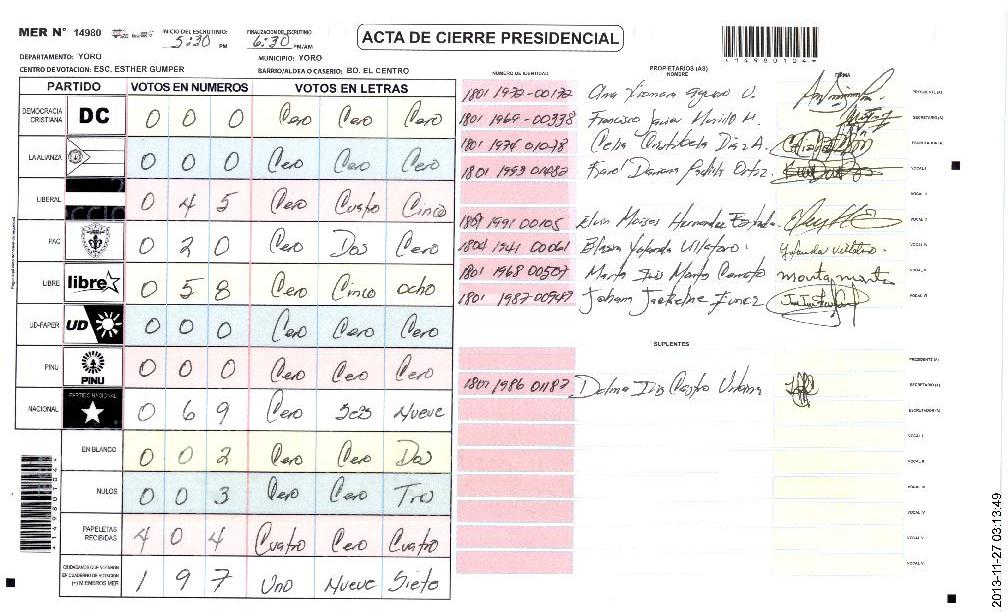 MER N° 14980 INICIO DEL ESCRUTINIO: 5:30 PM FINALIZACION DEL ESCRUTINIO 6:30 PM/AM
ACTA DE CIERRE PRESIDENCIAL
DEPARTAMENTO: YORO MUNICIPIO: YORO
CENTRO DE VOTACION: ESC. ESTHER GUMPER BARRIO/ALDEA O CASERIO: BO. EL CENTRO
PARTIDO VOTOS EN NUMEROS VOTOS EN LETRAS
DEMOCRACIA CRISTIANA DC 0 0 0 Cero Cero Cero
LA ALIANZA 0 0 0 Cero Cero Cero
LIBERAL 0 4 5 Cero Cuatro Cinco
PAC 0 2 0 Cero Dos Cero
LIBRE libre 0 5 8 Cero Cinco ocho
UD-FAPER UD 0 0 0 Cero Cero Cero
PINU PINU 0 0 0 Cero Cero Cero
NACIONAL PARTIDO NACIONAL 0 6 9 Cero Seis Nueve
EN BLANCO 0 0 2 Cero Cero Dos
NULOS 0 0 3 Cero Cero Tres
PAPELETAS RECIBIDAS 4 0 4 Cuatro Cero Cuatro
CIUDADANOS QUE VOTARON EN CUADERNO DE VOTACION (+) MIEMBROS MER 1 9 7 Uno Nueve Siete
*14980104*
PROPIETARIOS (AS)
NUMERO DE IDENTIDAD NOMBRE FIRMA
1801 1972-00172 Ana PRESIDENTE (A)
1801 1969-00338 Francisco Javier Murillo M. SECRETARIO (A)
1801 1974 01078 Celia ESCRUTADOR (A)
1801 1993 01082 Karol Ortiz. VOCAL I
VOCAL II
1801 1991 00105 Elvin Moises Hernandez Estrada.
1804 1941 00061 Elasia Yolanda Villafaro. Yolanda VOCAL IV
1801 1968 00507 Marta Iris
1801 1987-00947 Joham Jackeline Funez VOCAL VI
SUPLENTES
PRESIDENTE (A)
1801 1986 01187 Delma Iris Castro Urbina SECRETARIO (A)
ESCRUTADOR (A)
VOCAL I
VOCAL II
VOCAL III
VOCAL IV
VOCAL V
VOCAL VI
2013-11-27 03:13:49